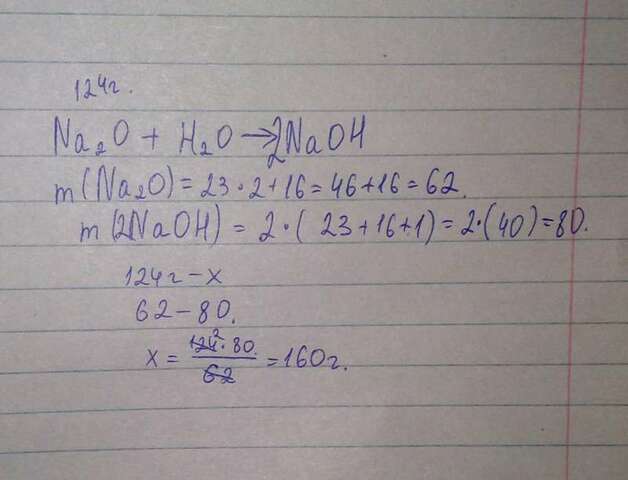 124г.
Na₂O + H₂O → 2NaOH
m(Na₂O) = 23·2+16 = 46+16 = 62.
m(2NaOH) = 2·(23+16+1) = 2·(40) = 80.
124г – x
62 – 80.
x = 124² · 80. / 62 = 160г.